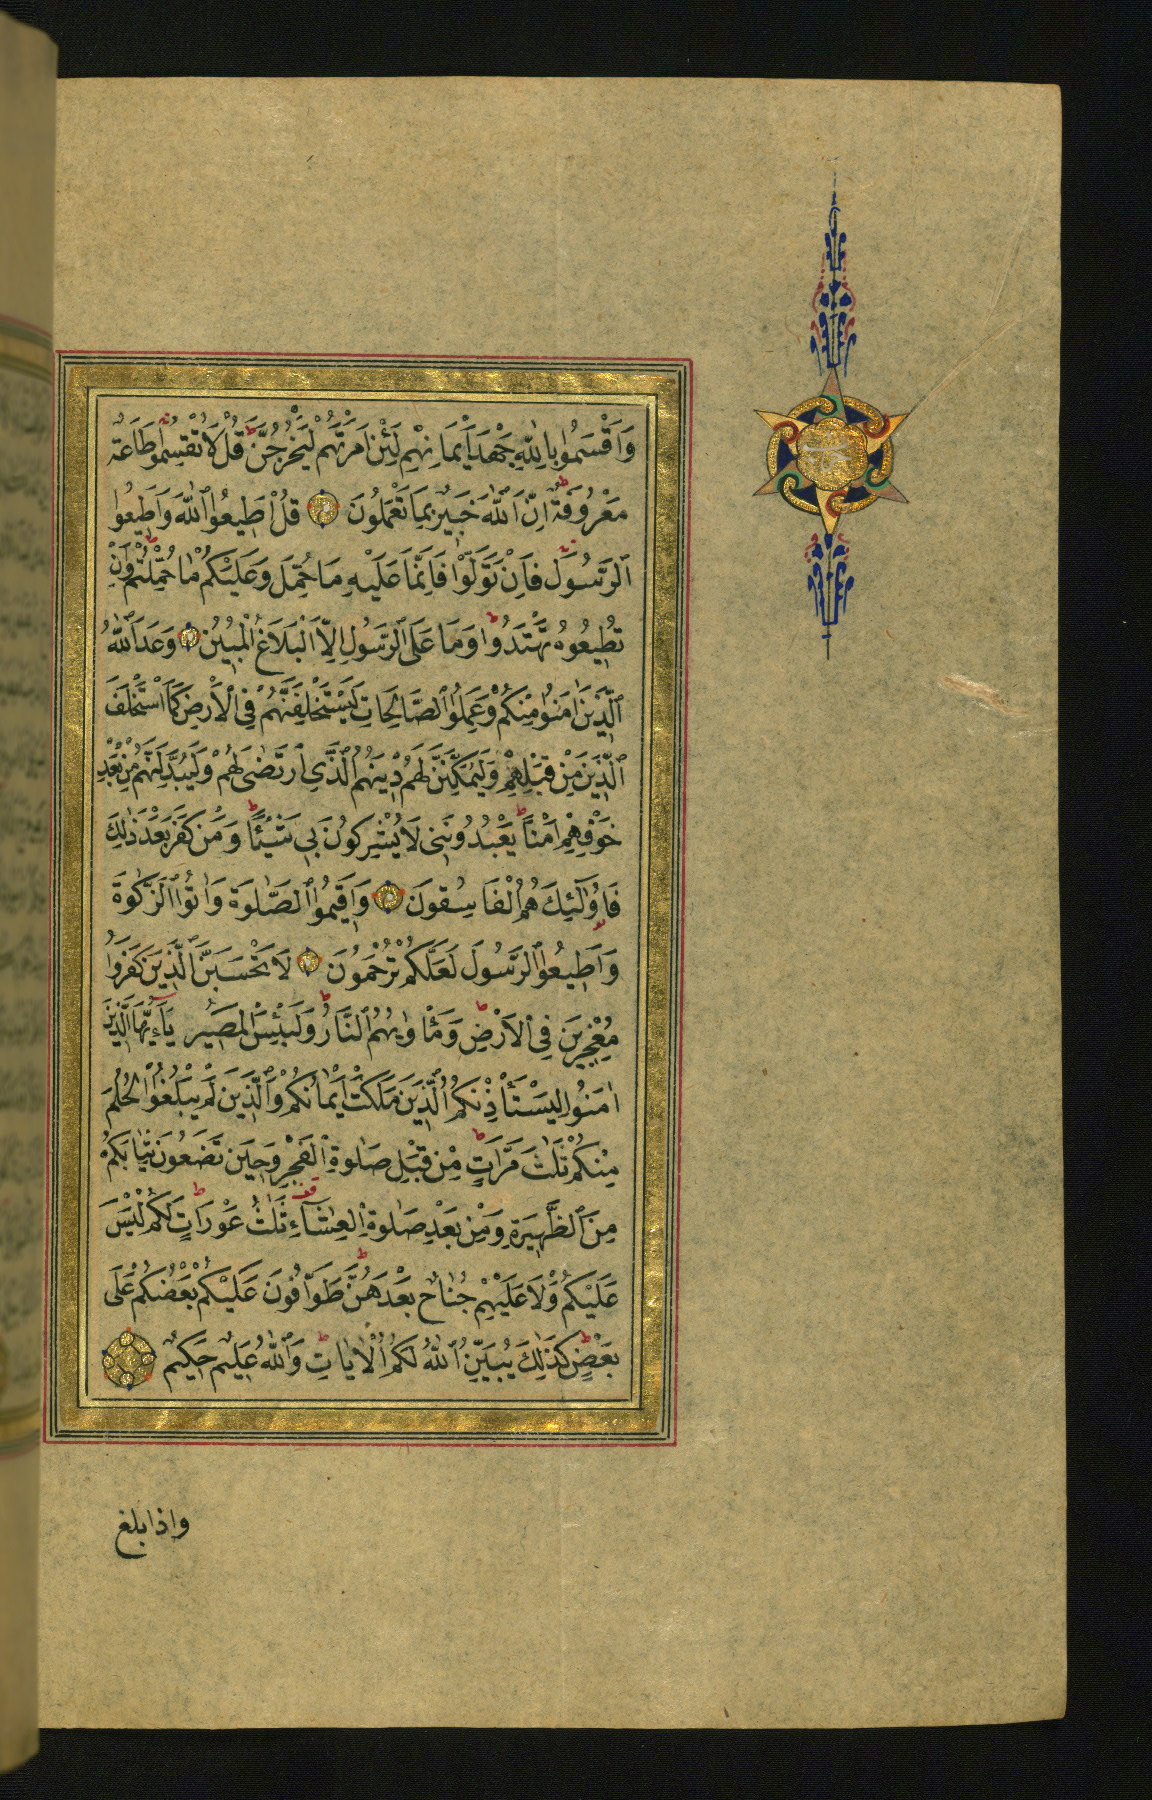 وَاَقْسَمُوا بِاللّٰهِ جَهْدَ اَيْمَانِهِمْ لَئِنْ اَمَرْتَهُمْ لَيَخْرُجُنَّ قُلْ لَا تُقْسِمُوا طَاعَةٌ
مَعْرُوفَةٌ اِنَّ اللّٰهَ خَبِيرٌ بِمَا تَعْمَلُونَ قُلْ اَطِيعُوا اللّٰهَ وَاَطِيعُوا
الرَّسُولَ فَاِنْ تَوَلَّوْا فَاِنَّمَا عَلَيْهِ مَا حُمِّلَ وَعَلَيْكُمْ مَا حُمِّلْتُمْ وَاِنْ
تُطِيعُوهُ تَهْتَدُوا وَمَا عَلَى الرَّسُولِ اِلَّا الْبَلَاغُ الْمُبِينُ وَعَدَ اللّٰهُ
الَّذِينَ اٰمَنُوا مِنْكُمْ وَعَمِلُوا الصَّالِحَاتِ لَيَسْتَخْلِفَنَّهُمْ فِي الْاَرْضِ كَمَا اسْتَخْلَفَ
الَّذِينَ مِنْ قَبْلِهِمْ وَلَيُمَكِّنَنَّ لَهُمْ دِينَهُمُ الَّذِي ارْتَضٰى لَهُمْ وَلَيُبَدِّلَنَّهُمْ مِنْ بَعْدِ
خَوْفِهِمْ اَمْنًا يَعْبُدُونَنِي لَا يُشْرِكُونَ بِي شَيْئًا وَمَنْ كَفَرَ بَعْدَ ذٰلِكَ
فَاُولٰٓئِكَ هُمُ الْفَاسِقُونَ وَاَقِيمُوا الصَّلٰوةَ وَاٰتُوا الزَّكٰوةَ
وَاَطِيعُوا الرَّسُولَ لَعَلَّكُمْ تُرْحَمُونَ لَا تَحْسَبَنَّ الَّذِينَ كَفَرُوا
مُعْجِزِينَ فِي الْاَرْضِ وَمَأْوٰيهُمُ النَّارُ وَلَبِئْسَ الْمَصِيرُ يَٓا اَيُّهَا الَّذِينَ
اٰمَنُوا لِيَسْتَأْذِنْكُمُ الَّذِينَ مَلَكَتْ اَيْمَانُكُمْ وَالَّذِينَ لَمْ يَبْلُغُوا الْحُلُمَ
مِنْكُمْ ثَلٰثَ مَرَّاتٍ مِنْ قَبْلِ صَلٰوةِ الْفَجْرِ وَحِينَ تَضَعُونَ ثِيَابَكُمْ
مِنَ الظَّهِيرَةِ وَمِنْ بَعْدِ صَلٰوةِ الْعِشَٓاءِ ثَلٰثُ عَوْرَاتٍ لَكُمْ لَيْسَ
عَلَيْكُمْ وَلَا عَلَيْهِمْ جُنَاحٌ بَعْدَهُنَّ طَوَّافُونَ عَلَيْكُمْ بَعْضُكُمْ عَلٰى
بَعْضٍ كَذٰلِكَ يُبَيِّنُ اللّٰهُ لَكُمُ الْاٰيَاتِ وَاللّٰهُ عَلِيمٌ حَكِيمٌ
واذا بلغ